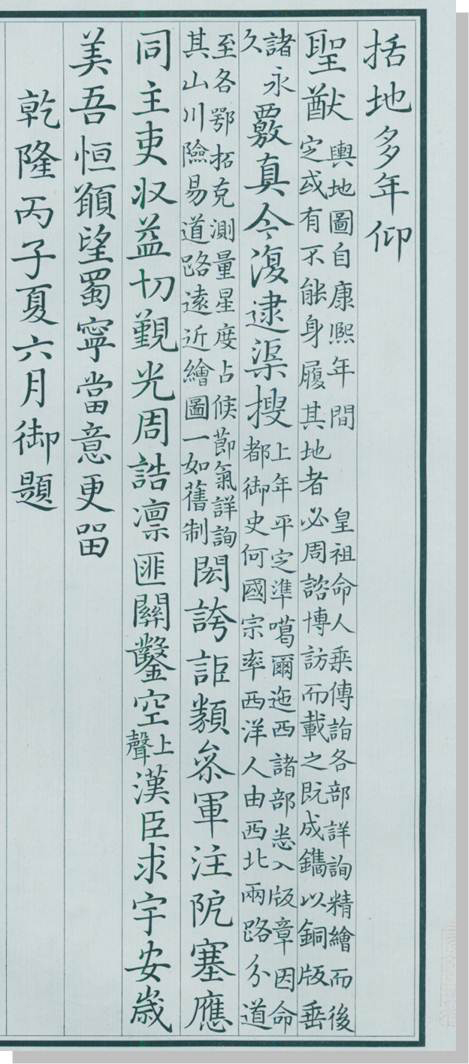 括地多年仰
聖猷輿地圖自康熙年間 皇祖命人乘傳詣各部詳詢精繪而後
定或有不能身履其地者必周諮博訪而載之既成鐫以銅版垂
諸永
久
覈真今復逮渠搜上年平定準噶爾迤西諸部悉入版章因命
都御史何國宗率西洋人由西北兩路分道
至各鄂拓克測量星度占候節氣詳詢
其山川險易道路遠近繪圖一如舊制
閎誇詎類叅軍注阸塞應
同主吏収益切覲光周誥凛匪關鑿空上聲漢臣求宇安歲
美吾恒願望蜀寧當意更㽞
乾隆丙子夏六月御題